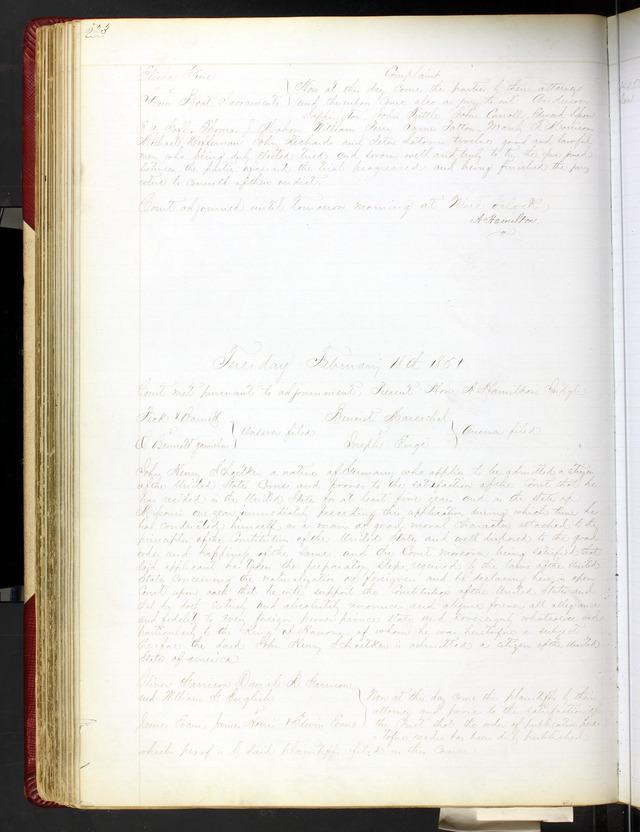 523
Complaint
vs Now at this day come the parties by their attorneys
Steam Boat Sacramento and thereupon came also a jury to wit Anderson
John Little John Carroll Edward
Thomas J William
Michael Heffernan John Richards and Peter twelve good and lawful
men who being duly elected tried and sworn well and truly to try the
between the parties aforesaid the trial progressed and being finished the jury
retire to consult of their verdict
Court adjourned until tomorrow morning at Nine oclock
A Hamilton
Tuesday February 18th 1851
Court met pursuant to adjournment, Present Hon A Hamilton Judge
& Barnett Benoist Marechal
vs Answer filed vs Answer filed
Bennett garnishee Joseph
John Henry a native of Germany who applies to be admitted a citizen
of the United States Comes and proves to the satisfaction of the Court that he
has resided in the United States for at least five years and in the state of
Missouri one year immediately preceding this application during which time he
has conducted himself as a man of good moral character attached to the
principles of the Constitution of the United States and well disposed to the good
order and happiness of the same and the Court moreover being satisfied that
said applicant has taken the preparatory steps required by the laws of the United
States concerning the naturalization of foreigners and he declaring here in open
Court upon oath that he will support the Constitution of the United States and
that he doth entirely and absolutely renounce and abjure forever all allegiance
and fidelity to every foreign power prince state and sovereignty whatsoever and
particularly to the King of of whom he was heretofore a subject
Therefore the said John Henry is admitted a citizen of the United
States of america
Oliver Garrison Daniel R Garrison
and William G English Now at this day come the plaintiffs by their
vs attorney and prove to the satisfaction of
James Evans James & Edwin Evans the Court that the order of publication
made has been duly published
which proof is by said plaintiffs filed in this Cause